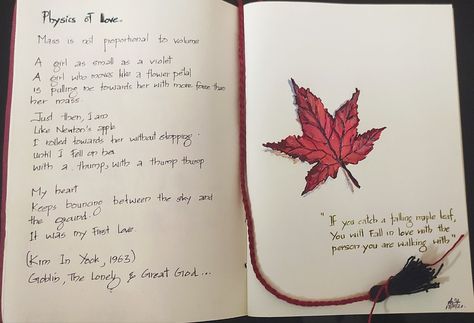 Physics of Love.
Mass is not proportional to volume
A girl as small as a violet
A girl who moves like a flower petal
is pulling me towards her with more force than
her mass.
Just then, I am
Like Newton's apple
I rolled towards her without stopping.
until I fell on her
with a thump, with a thump thump
My heart
Keeps bouncing between the sky and
the ground.
It was my first love.
(Kim In Yook, 1963)
Goblin, The Lonely & Great God...
"If you catch a falling maple leaf,
You will Fall in love with the
person you are walking with"